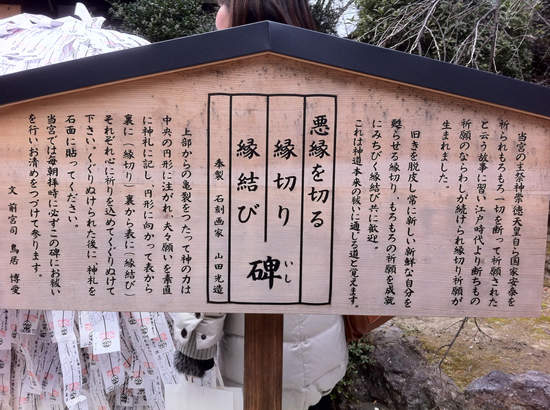 当宮の主祭神崇徳天皇自ら国家安泰を
祈られもろもろ一切を断って祈願された
と云う故事に習い江戸時代より断ちもの
祈願のならわしが続けられ縁切り祈願が
生まれました。
旧きを脱皮し常に新しい新鮮な自分を
甦らせる縁切り、もろもろの祈願を成就
にみちびく縁結び共に歓迎。
これは神道本来の祓いに通じる道と覚えます。
悪縁を切る
縁切り
縁結び
碑
いし
奉製 石刻画家 山田光造
上部からの亀裂をつたって神の力は
中央の円形に注がれ、夫々願いを素直
に神札に記し、円形に向かって表から
裏に（縁切り）裏から表に（縁結び）
それぞれ心に祈りを込めてくぐりぬけて
下さい。くぐりぬけられた後に、神札を
石面に貼ってください。
当宮で毎朝拝時に必ずこの碑にお祓い
を行いお清めをつづけて参ります。
文 前宮司 鳥居 博愛